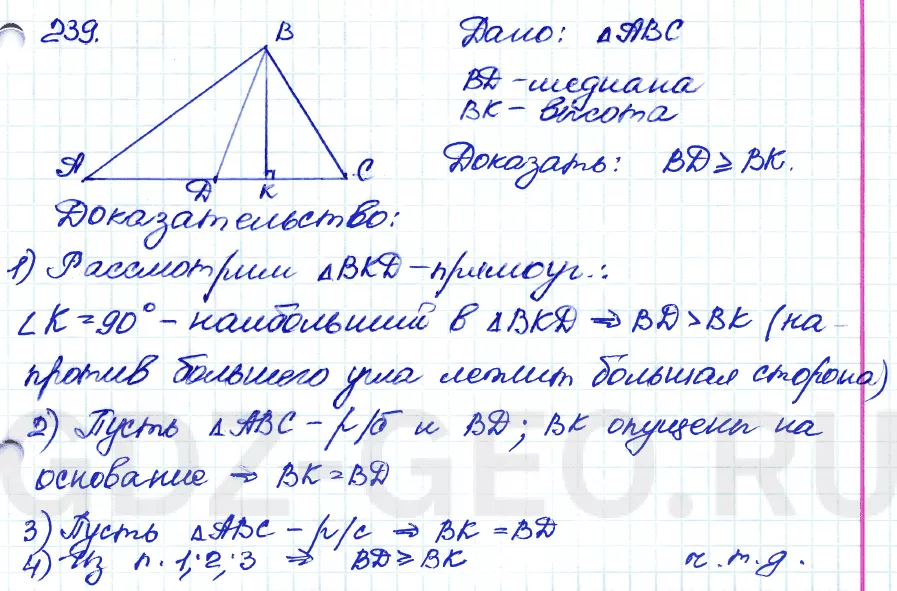 239.
B
Дано: △ABC
BD - медиана
BK - высота
A
D
K
C
Доказать: BD ⩾ BK.
Доказательство:
1) Рассмотрим △BKD - прямоуг.:
∠K = 90° - наибольший в △BKD ⇒ BD > BK (на-
против большего угла лежит большая сторона)
2) Пусть △ABC - р/б и BD; BK опущены на
основание ⇒ BK = BD
3) Пусть △ABC - р/с ⇒ BK = BD
4) Из п. 1; 2; 3 ⇒ BD ⩾ BK ч.т.д.
GDZ-GEO.RU